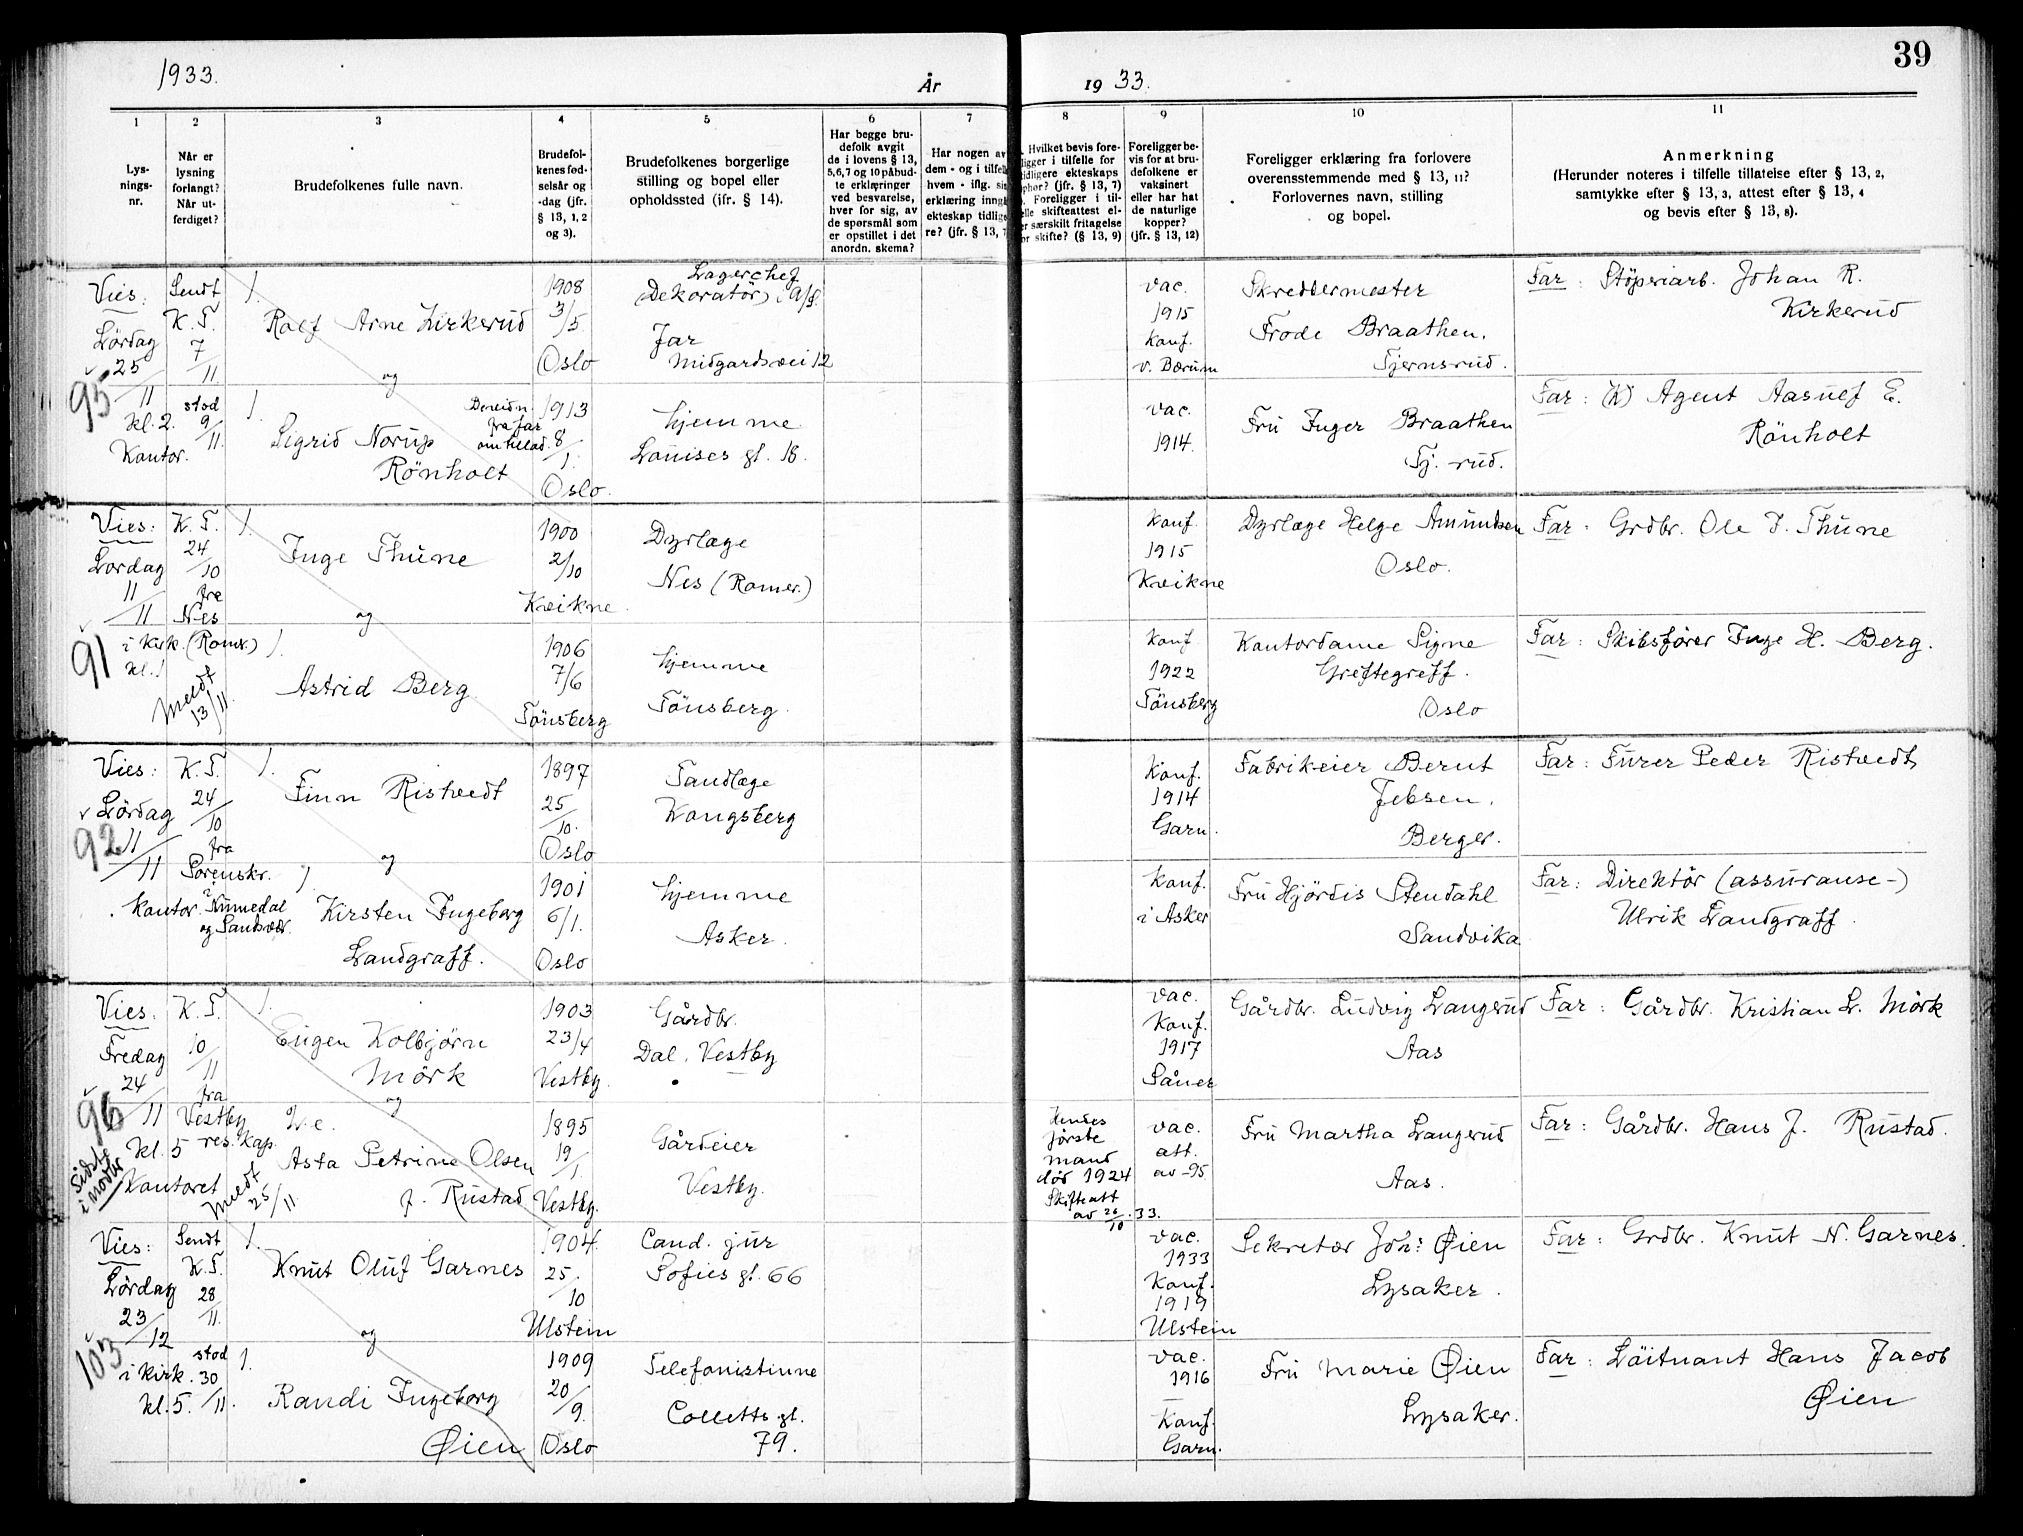 39
1933.
År
19 33.
1
2
3
4
5
6
7
8
9
10
11
Lys-
nings-
nr.
Når er
lysning
forlangt?
Når ut-
ferdiget?
Brudefolkenes fulle navn.
Brudefol-
kenes fød-
selsår og
-dag (jfr.
§ 13, 1, 2
og 3).
Brudefolkenes borgerlige
stilling og bopel eller
opholdssted (jfr. § 14).
Har begge bru-
defolk avgit
de i lovens § 13,
5,6,7 og 10 påbud-
te erklæringer
ved besvarelse,
hver for sig, av
de spørsmål som
er opstillet i det
anordn. skema?
Har nogen av
dem - og i tilfelle
hvem - iflg. sin
erklæring inngå
ekteskap tidlige
re? (jfr. § 13, 7
Hvilket bevis fore-
ligger i tilfelle for
tidligere ekteskaps
ophør? (jfr. § 13, 7)
Foreligger i til-
elle skifteattest el-
er særskilt fritagelse
or skifte? (§ 13, 9)
Foreligger be-
vis for at bru-
defolkene er
vaksinert
eller har hat
de naturlige
kopper?
(jfr. § 13, 12)
Foreligger erklæring fra forlovere
overensstemmende med § 13, 11?
Forlovernes navn, stilling
og bopel.
Anmerkning
(Herunder noteres i tilfelle tillatelse efter § 13, 2,
samtykke efter § 13, 3, attest efter § 13, 4
og bevis efter § 13, 8).
Vies:
Lördag
25/11
95
kl. 2.
Kontor.
Sendt
K.T.
7/11
stod
9/11
1.
Rolf Arne Kirkerud
og
1.
Sigrid Norup
Rönholt
fra far
om tillad.
1908
3/5
Oslo
1913
8/1.
Oslo.
Lagerchef
(Dekoratör) i A/S.
Jar
Midgardsvei 12
hjemme
Louises gt. 18.
vac.
1915
Konf.
v. Bærum
vac.
1914.
Skreddermester
Frode Braathen.
Tjernsrud.
Fru Inger Braathen
Tj. rud.
Far: Stöperiarb. Johan R.
Kirkerud
Far: (K) Agent Aasulf E.
Rönholt
Vies:
Lordag
11/11
91
i Kirk.
kl. 1
K.T.
24/10
fra
Nes
(Romr.)
Meldt
13/11.
1.
Inge Thune
og
1.
Astrid Berg
1900
2/10
Kvikne.
1906
7/6
Tönsberg
Dyrlæge
Nes (Romer.)
hjemme
Tönsberg.
Konf.
1915
Kvikne
Konf
1922
Tönsberg
Dyrlæge Helge Amundsen
Oslo.
Kontordame Signe
Greftegreff.
Oslo
Far: Grdbr. Ole J. Thune
Far: Skibsförer Inge H. Berg.
Vies:
Lördag
11/11
92
Kontor.
K.T.
24/10
fra
Sorenskr.
i Numedal
og Sandsvær.
1.
Finn Ristvedt
og
1.
Kirsten Ingeborg
Landgraff.
1897
25/10.
Oslo
1901
6/1.
Oslo
Tandlæge
Kongsberg
hjemme
Asker.
Konf.
1914
Garn.
Konf.
i Asker
Fabrikeier Bernt
Jebsen.
Berger.
Fru Hjördis Stendahl
Sandvika
Far: Furer Peder Ristvedt
Far: Direktör (assuranse-)
Ulrik Landgraff.
Vies:
Fredag
24/11
96
kl. 5
Kontoret
Sidste
i nodbr
K.T.
10/11
fra
Vestby
res. kap.
Meldt
25/11
1.
Eugen Kolbjørn
Mörk
og
Asta Petrine Olsen
f. Rustad
1903
23/4
Vestby.
1895
19/1.
Vestby.
Gårdbr.
Dal. Vestby
Gårdeier
Vestby.
Hendes
første
mand
död 1924
Skifteatt
av 26/10.33.
vac.
Konf.
1917
Såner
vac.
att.
av -95.
Gårdbr. Ludvig Langerud
Aas
Fru Martha Langerud
Aas.
Far: Gårdbr. Kristian L. Mörk
Far: Gårdbr. Hans J. Rustad.
Vies:
Lördag
23/12
103
i Kirk.
kl. 5.
Sendt
K.T.
28/11.
stod
30/11.
1.
Knut Oluf Garnes
og
1.
Randi Ingeborg
Øien
1904.
25./10
Ulstein
1909
20/9.
Oslo
Cand. jur
Sofies gt. 66
Telefonistinne
Colletts gt.
79.
vac.
1933
Konf.
1919
Ulstein
vac.
1916
Konf.
Garn.
Sekretær Joh: Øien
Lysaker.
Fru Marie Øien
Lysaker.
Far: Grdbr. Knut N. Garnes.
Far: Löitnant Hans Jacob
Øien